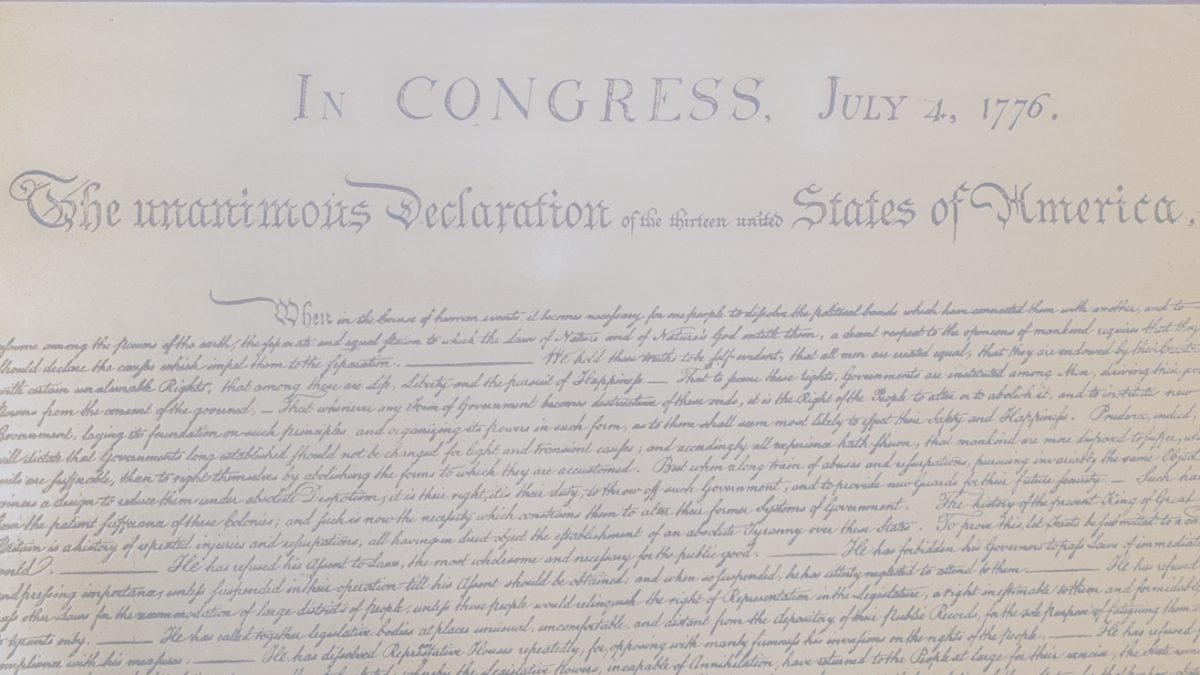 In CONGRESS, July 4, 1776.
The unanimous Declaration of the thirteen united States of America,
When in the Course of human events, it becomes necessary for one people to dissolve the political bands which have connected them with another, and to
assume among the powers of the earth, the separate and equal station to which the Laws of Nature and of Nature's God entitle them, a decent respect to the opinions of mankind requires that they
should declare the causes which impel them to the separation. ——— We hold these truths to be self-evident, that all men are created equal, that they are endowed by their Creator
with certain unalienable Rights, that among these are Life, Liberty and the pursuit of Happiness — That to secure these rights, Governments are instituted among Men, deriving their just
powers from the consent of the governed, — That whenever any Form of Government becomes destructive of these ends, it is the Right of the People to alter or to abolish it, and to institute new
Government, laying its foundation on such principles and organizing its powers in such form, as to them shall seem most likely to effect their Safety and Happiness. Prudence, indeed,
will dictate that Governments long established should not be changed for light and transient causes; and accordingly all experience hath shewn, that mankind are more disposed to suffer, while
evils are sufferable, than to right themselves by abolishing the forms to which they are accustomed. But when a long train of abuses and usurpations, pursuing invariably the same Object
evinces a design to reduce them under absolute Despotism, it is their right, it is their duty, to throw off such Government, and to provide new Guards for their future security. — Such has
been the patient sufferance of these Colonies; and such is now the necessity which constrains them to alter their former Systems of Government. The history of the present King of Great
Britain is a history of repeated injuries and usurpations, all having in direct object the establishment of an absolute Tyranny over these States. To prove this, let Facts be submitted to a
world. ——— He has refused his Assent to Laws, the most wholesome and necessary for the public good. ——— He has forbidden his Governors to pass Laws of immediate
and pressing importance, unless suspended in their operation till his Assent should be obtained; and when so suspended, he has utterly neglected to attend to them. ——— He has refused
pass other Laws for the accommodation of large districts of people, unless those people would relinquish the right of Representation in the Legislature, a right inestimable to them and formidable
to tyrants only. ——— He has called together legislative bodies at places unusual, uncomfortable, and distant from the depository of their Public Records, for the sole purpose of fatiguing them
compliance with his measures. ——— He has dissolved Representative Houses repeatedly, for opposing with manly firmness his invasions on the rights of the people. ——— He has refused
whereby the Legislative powers, incapable of Annihilation, have returned to the People at large for their exercise; the State